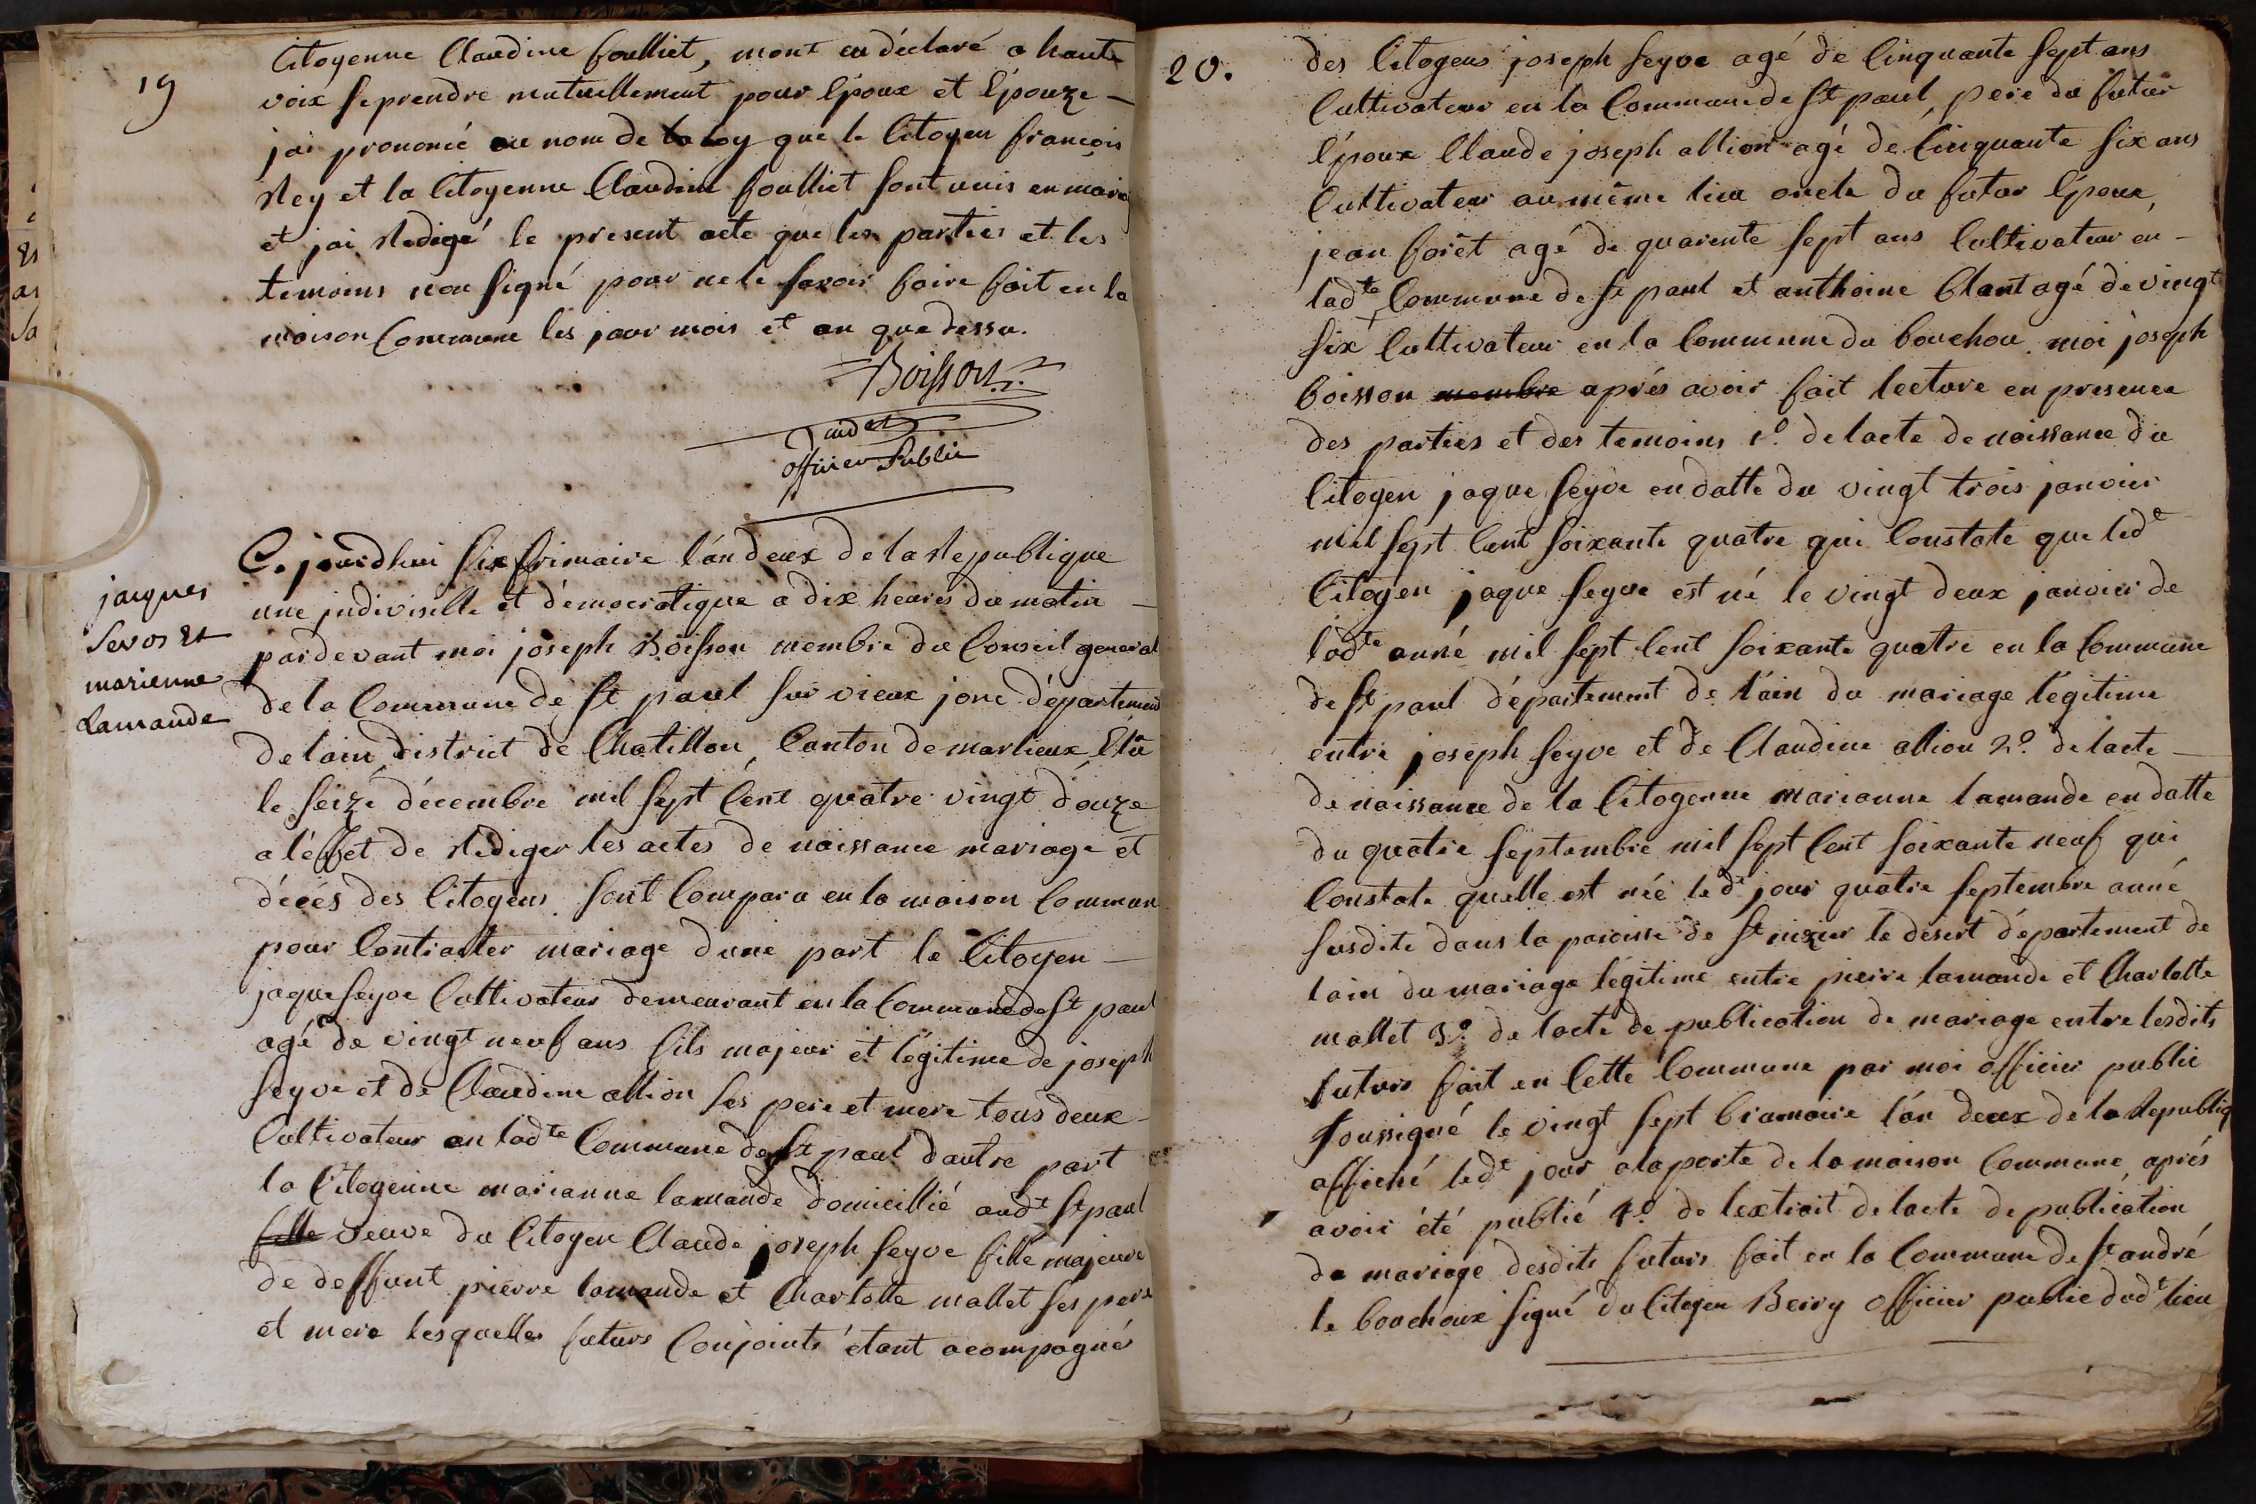 19
Citoyenne Claudine foulliet, mont en déclaré a haute
voix se prendre mutuellement pour Epoux et Epouze —
jai prononcé au nom de la loy que le Citoyen françois
Rey et la Citoyenne Claudine foulliet sont unis en mariag
et jai Redigé le present acte que les parties et les
temoins non signé pour ne le savoir faire fait en la
maison Commune les jour mois et an que dessu.
Boisson
officier Public
jacques
Sevos Et
marienne
Lamande
Ce jourdhui six frimaire l'an deux de la Republique
une jndivisille et démocratique a dix heures du matin —
pardevant moi joseph Boisson membre du Conseil general
de la Commune de St paul sur vieux jonc département
de lain, district de Chatillon, Canton de marlieux, Elû
le seize décembre mil sept Cent quatre vingt douze
a l'éffet de Rediger les actes de naissance mariage et
décés des Citoyens sont Comparu en la maison Commun
pour Contracter mariage dune part le Citoyen —
jaque seyve Cultivateur demeurant en la Commune de St paul
agé de vingt neuf ans fils majeur et légitime de joseph
seyve et de Claudine allion ses pere et mere tous deux —
Cultivateur en ladte Commune de St paul dautre part
la Citoyenne marianne lamande domicillié audt St paul
fille veuve du Citoyen Claude joseph seyve fille majeure
de deffunt pierre lamande et Charlotte mallet ses pere
et mere lesquelles futurs Conjoints étant acompagnés
20.
des Citoyens joseph seyve agé de Cinquante sept ans
Cultivateur en la Commune de St paul, pere du futur
Epoux Claude joseph allion agé de Cinquante six ans
Cultivateur au même lieu oncle du futur Epoux,
jean forêt agé de quarente sept ans Cultivateur en —
ladte Commune de St paul et anthoine Clant agé de vingt
six Cultivateur en la Commune du bouchou. moi joseph
boisson membre aprés avoir fait lecture en presence
des parties et des temoins 1o. de lacte de naissance du
Citoyen jaque seyve en datte du vingt trois janvier
mil sept Cent soixante quatre qui Constate que ledt
Citoyen jaque seyve est né le vingt deux janvier de
ladte anné mil sept Cent soixante quatre en la Commune
de St paul département de l'ain du mariage légitime
entre joseph seyve et de Claudine allion 2o. de lacte —
de naissance de la Citoyenne marianne lamande en datte
du quatre septembre mil sept Cent soixante neuf qui
Constate quelle est née ledt jour quatre septembre anné
susdite dans la paroisse de St nizier le désert département de
lain du mariage légitime entre pierre lamande et Charlotte
mallet 3o. de lacte de publication de mariage entre lesdits
futurs fait en Cette Commune par moi officier public
soussigné le vingt sept brumaire l'an deux de la Republiq
affiché ledt jour a la porte de la maison Commune aprés
avoir été publié 4o. de lextrait de lacte de publication
de mariage desdits futurs fait en la Commune de St andré
le bouchoux signé du Citoyen Berry officier public dudt lieu